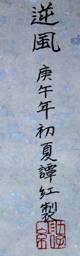 逆風
庚午年初夏譚紅製